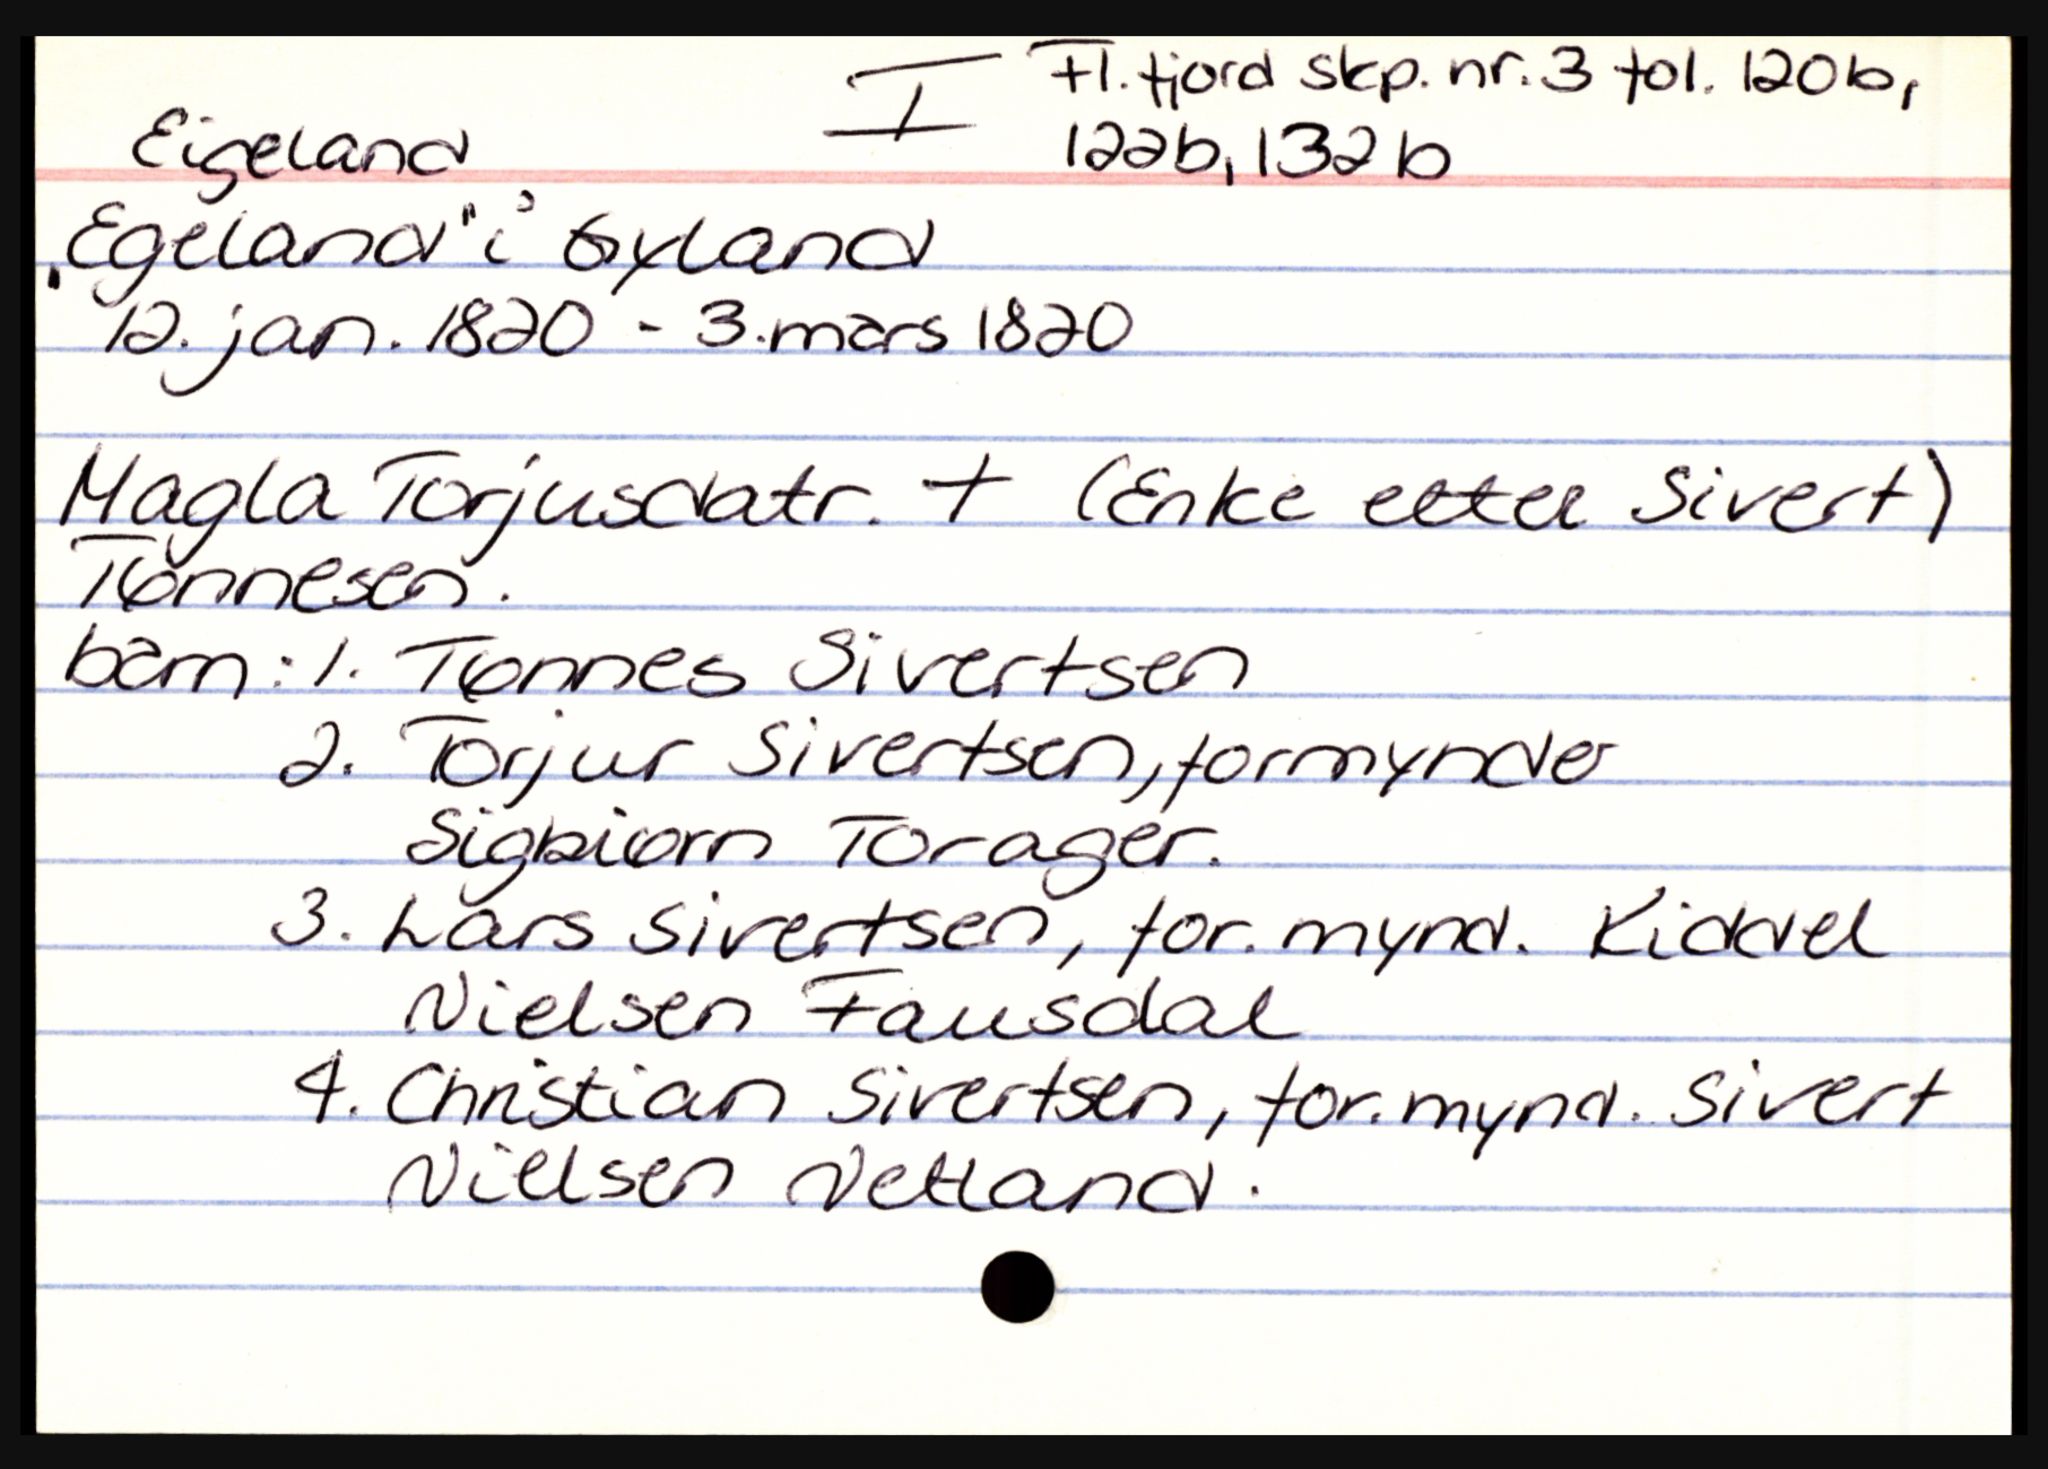 I Fl.fjord skp. nr. 3 fol. 120b,
Eigeland 122b, 132b
"Egeland" i Gyland
12. jan. 1820 - 3. mars 1820
Magla Torjusdatr. + (Enke etter Sivert)
Tønnesen.
barn: 1. Tønnes Sivertsen
2. Torjur Sivertsen, formynder
Sigbiørn Torager.
3. Lars Sivertsen, for.mynd. Kiddel
Nielsen Fausdal
4. Christian Sivertsen, for.mynd. Sivert
Nielsen Netland.